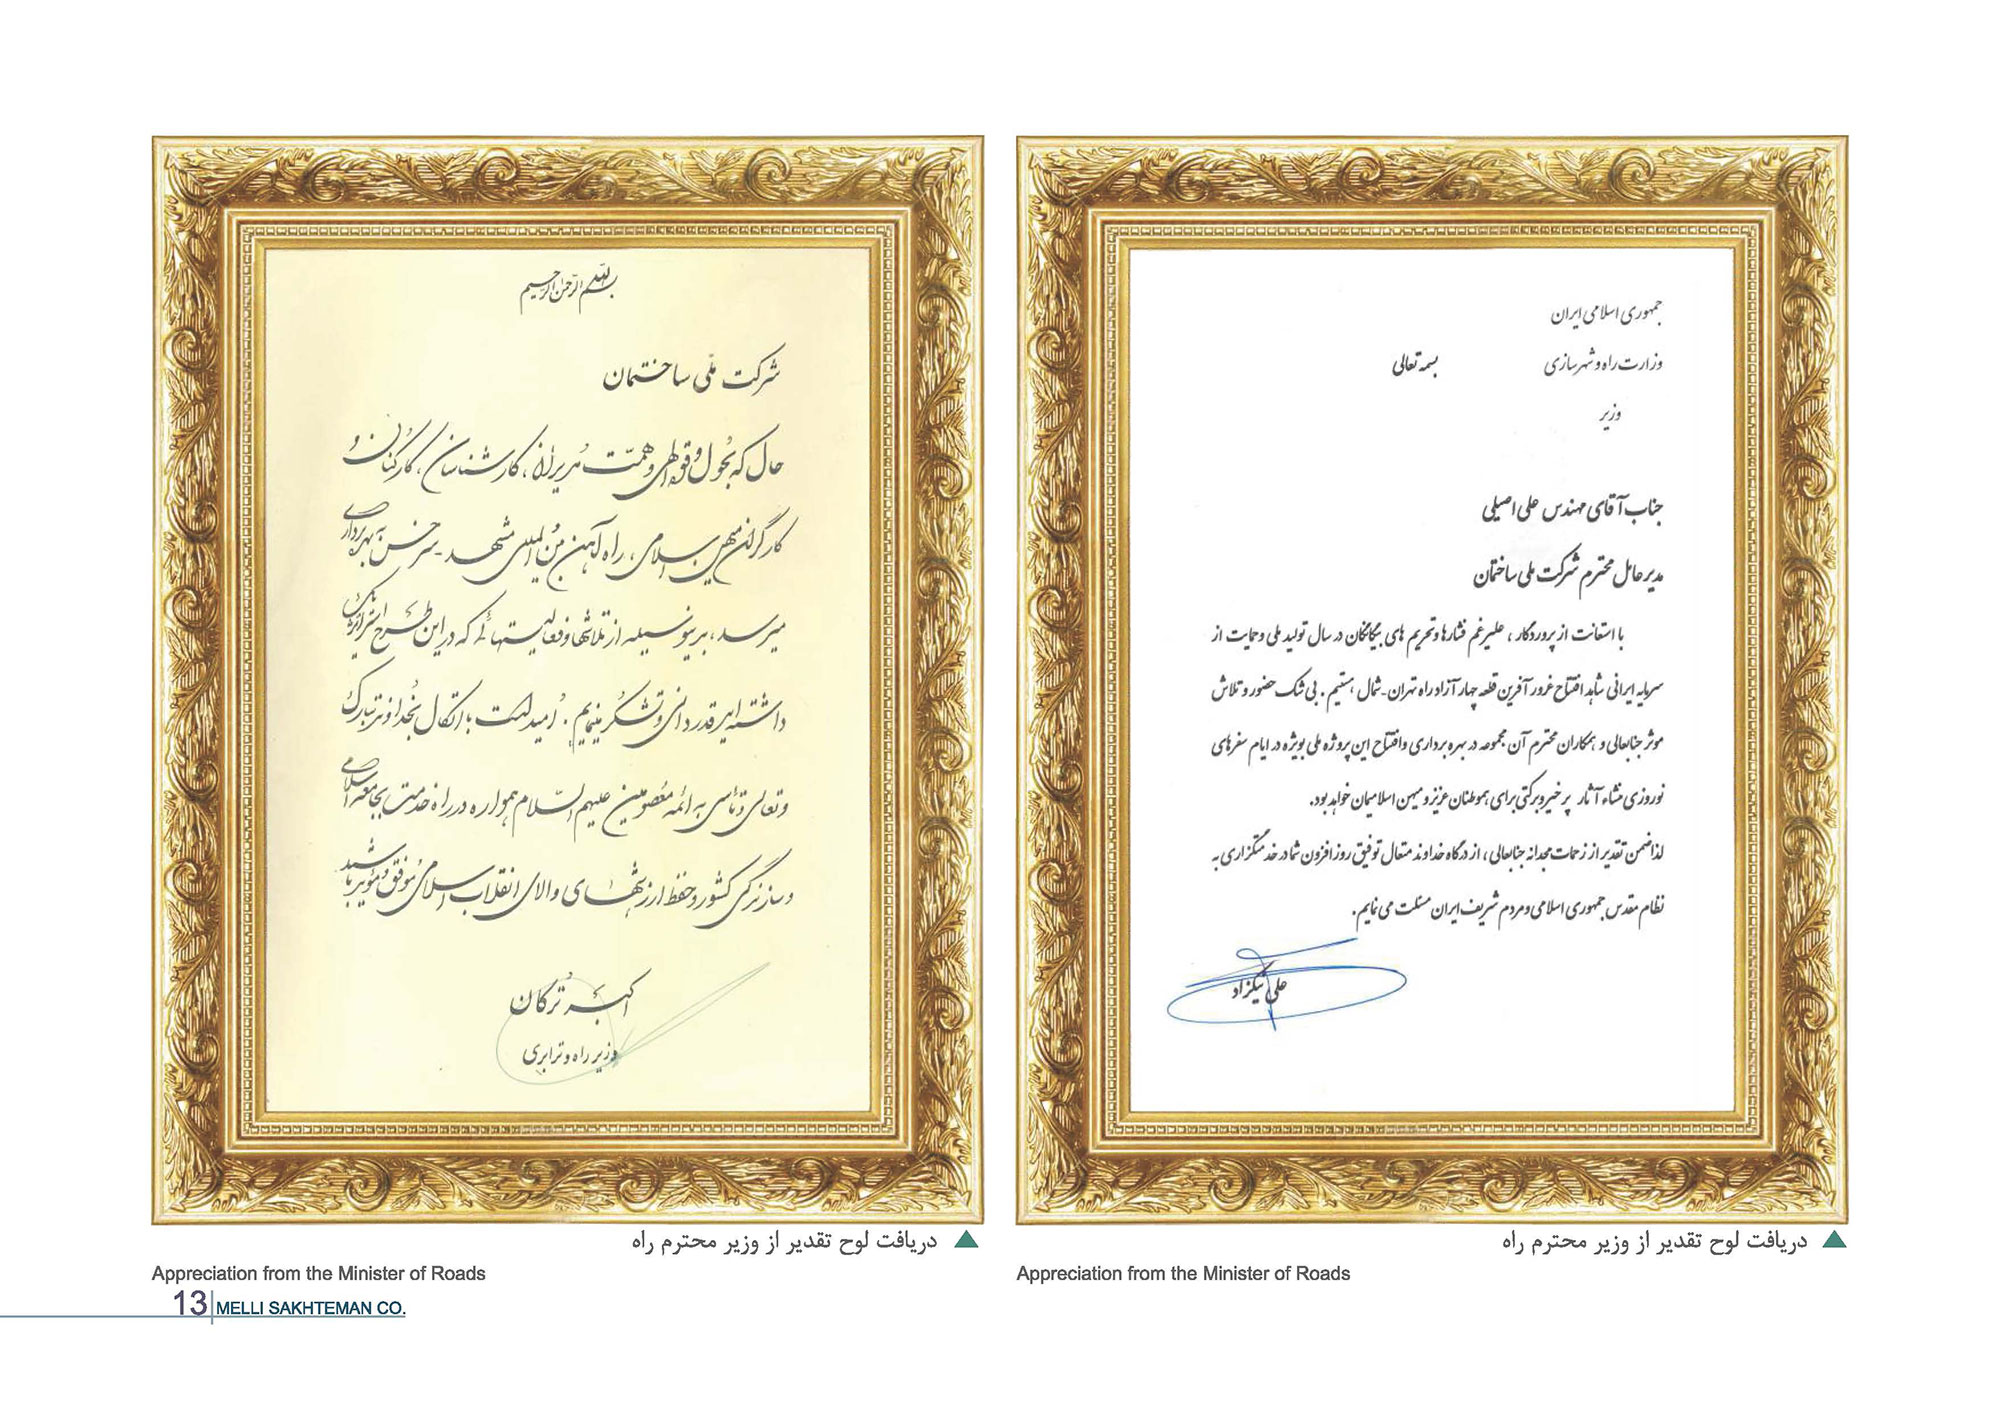 بسم الله الرحمن الرحیم
شرکت ملّی ساختمان
حال که بحول و قوه الهی و همّت مدیران، کارشناسان، کارکنان و
کارگران میهن اسلامی، راه آهن بین المللی مشهد - سرخس به بهره برداری
میرسد، بدینوسیله از تلاشها و فعالیتهائی که در این طرح
داشته اید قدردانی و تشکر مینمایم. امید است با اتکال بخداوند تبارک
و تعالی و تأسی به ائمه معصومین علیهم السّلام همواره در راه خدمت بجامعه اسلامی
و سازندگی کشور و حفظ ارزشهای والای انقلاب اسلامی موفق و مؤید باشید
اکبر ترکان
وزیر راه و ترابری
دریافت لوح تقدیر از وزیر محترم راه
Appreciation from the Minister of Roads
13 MELLI SAKHTEMAN CO.
جمهوری اسلامی ایران
وزارت راه و شهرسازی
بسمه تعالی
وزیر
جناب آقای مهندس علی اصیلی
مدیر عامل محترم شرکت ملی ساختمان
با استعانت از پروردگار، علیرغم فشارها و تحریم های بیگانگان در سال تولید ملی و حمایت از
سرمایه ایرانی شاهد افتتاح غرور آفرین قطعه چهار آزادراه تهران-شمال هستیم. بی شک حضور و تلاش
موثر جنابعالی و همکاران محترم آن مجموعه در بهره برداری و افتتاح این پروژه ملی بویژه در ایام سفرهای
نوروزی منشاء آثار پر خیر و برکتی برای هموطنان عزیز و میهن اسلامیمان خواهد بود.
لذا ضمن تقدیر از زحمات مجدانه جنابعالی، از درگاه خداوند متعال توفیق روز افزون شما در خدمتگزاری به
نظام مقدس جمهوری اسلامی و مردم شریف ایران مسئلت می نمایم.
علی نیکزاد
دریافت لوح تقدیر از وزیر محترم راه
Appreciation from the Minister of Roads